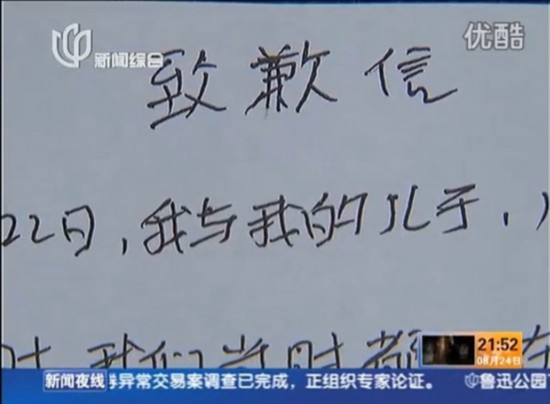 新闻综合
优酷
致歉信
22日,我与我的儿子,
时,我们当时都
21:52
08月24日
新闻夜线
券异常交易案调查已完成,正组织专家论证。
鲁迅公园